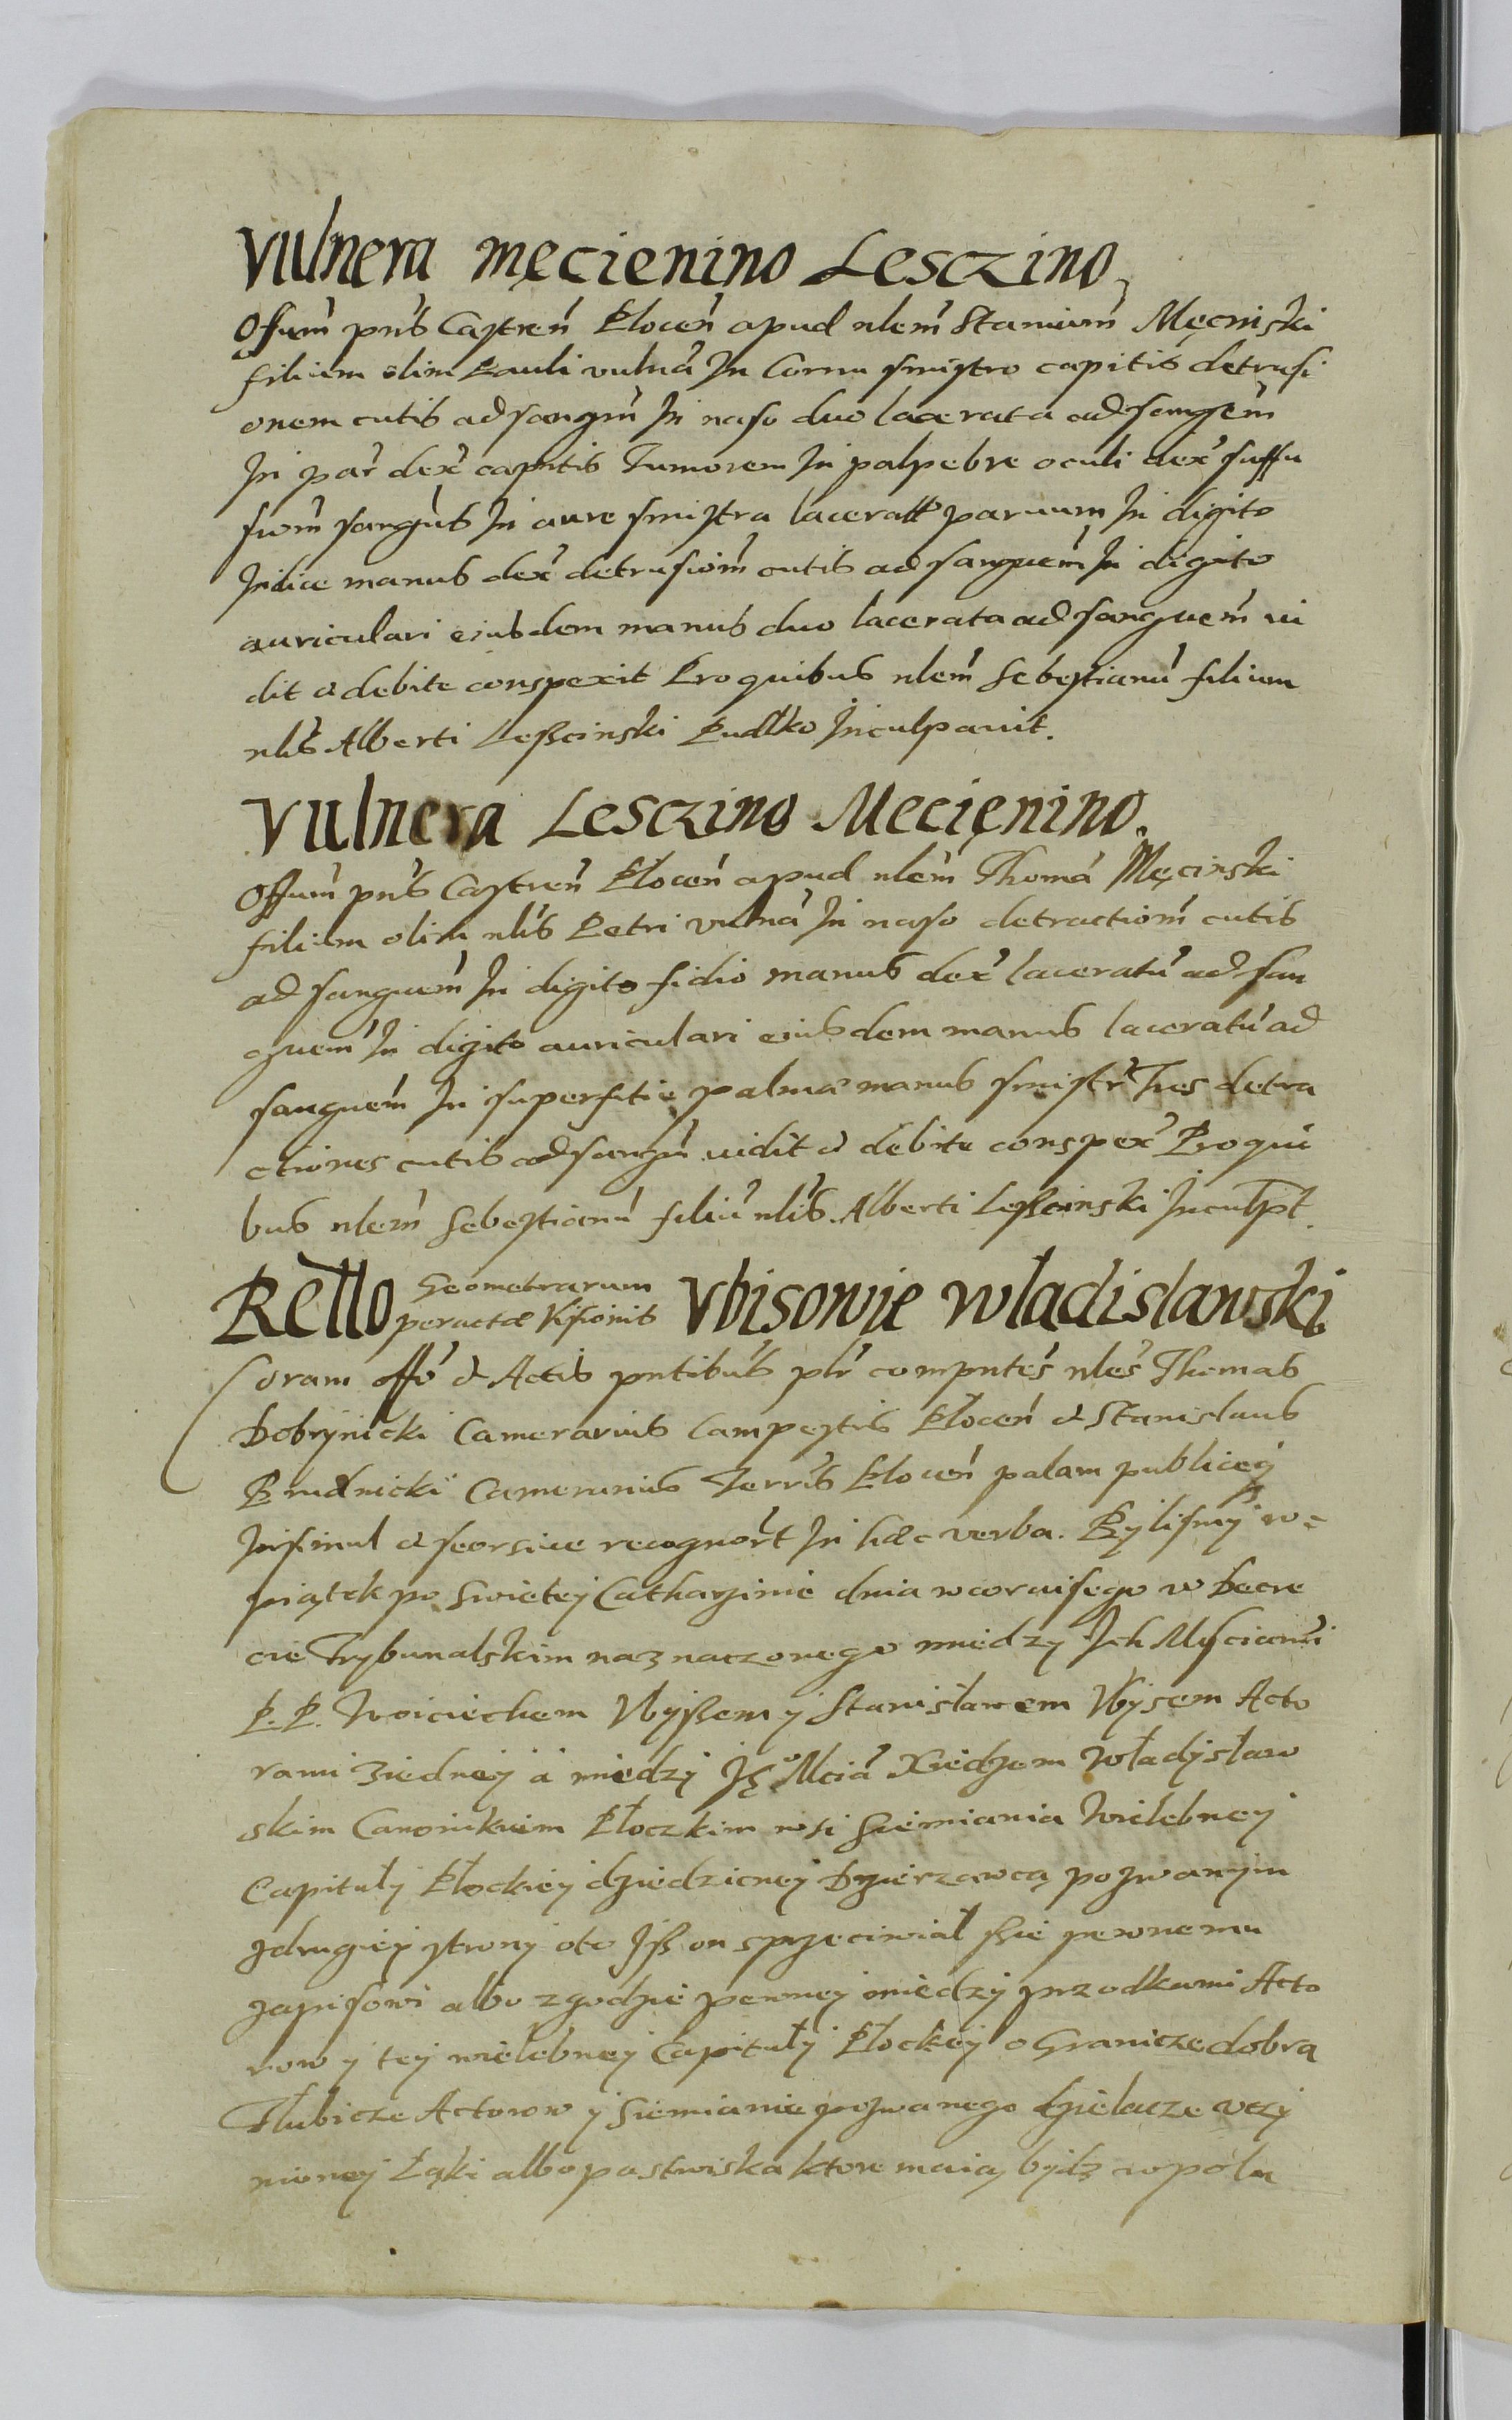 Vulnera męcienino Lesczino
Offum pns Castren Plocen apud nlem Stanium Męcinski
filium olim Pauli vulna In Cornu sinistro capitis detrusi
onem cutis ad sangm In naso duo lacerata ad sangem
In par dex capitis Tumorem In palpebre oculi dex suffu
siom sangnis In aure sinistra laceratt parvum In digito
Indice manus dex detrusiom cutis ad sanguem In digito
auriculari eiusdem manus duo lacerata ad sanguem vi
dit & debite conspexit Pro quibus nlem Sebestianu filium
nlis Alberti Leßcinski Pudłko Inculpavit.
Vulnera Lesczino Mecięnino.
Offum pns Castren Płocen apud nlem Thoma Męcinski
filium olim nlis Petri vulna In naso detractiom cutis
ad sanguem In digito fidio manus dex laceratu ad san
guem In digito auriculari eiusdem manus laceratu ad
sanguem In superfitie palmae manus sinistr Tres detra
ctiones cutis ad sangm vidit & debite conspex Pro qui
bus nlem Sebestianu filiu nlis Alberti Leßcinski Inculpt.
Retto Geometrarum peractae Visionis Vbisowie Władislawski
Coram offo & Actis pntibus plr compntes nles Thomas
Dobrynicki Camerarius Campestris Płocen & Stanislaus
Prudnicki Camerarius Terris Plocen palam publiceq
Insimul & seorsive recognort In haec verba. Bylismy w
piątek po Swietey Catharzinie dnia wcoraisego w Decre
cie Trybunalskim naznaczonego miedzy Ich Msciami
P. P. Woiciechem Vbyßem y Stanisławem Vbysem Acto
rami ziedney a miedzy Je Mcia Xiedzem Władysław
skim Canonikiem Płoczkim wsi Siemiania Wielebney
Capituły Płockiey dziedziczney Dzierzawcą pozwanym
zdrugiey strony oto Iß on sprzeciwiał ßie pewnemu
zapisowi albo zgodzie pewney miedzy przodkami Acto
row y tey wielebney Capituły Płockiey o Granicze dobra
Tłubicze Actorow y Siemianie pozwanego dzielacze vczy
nioney Łąki albo pastwiska ktore maią bydz wpolu